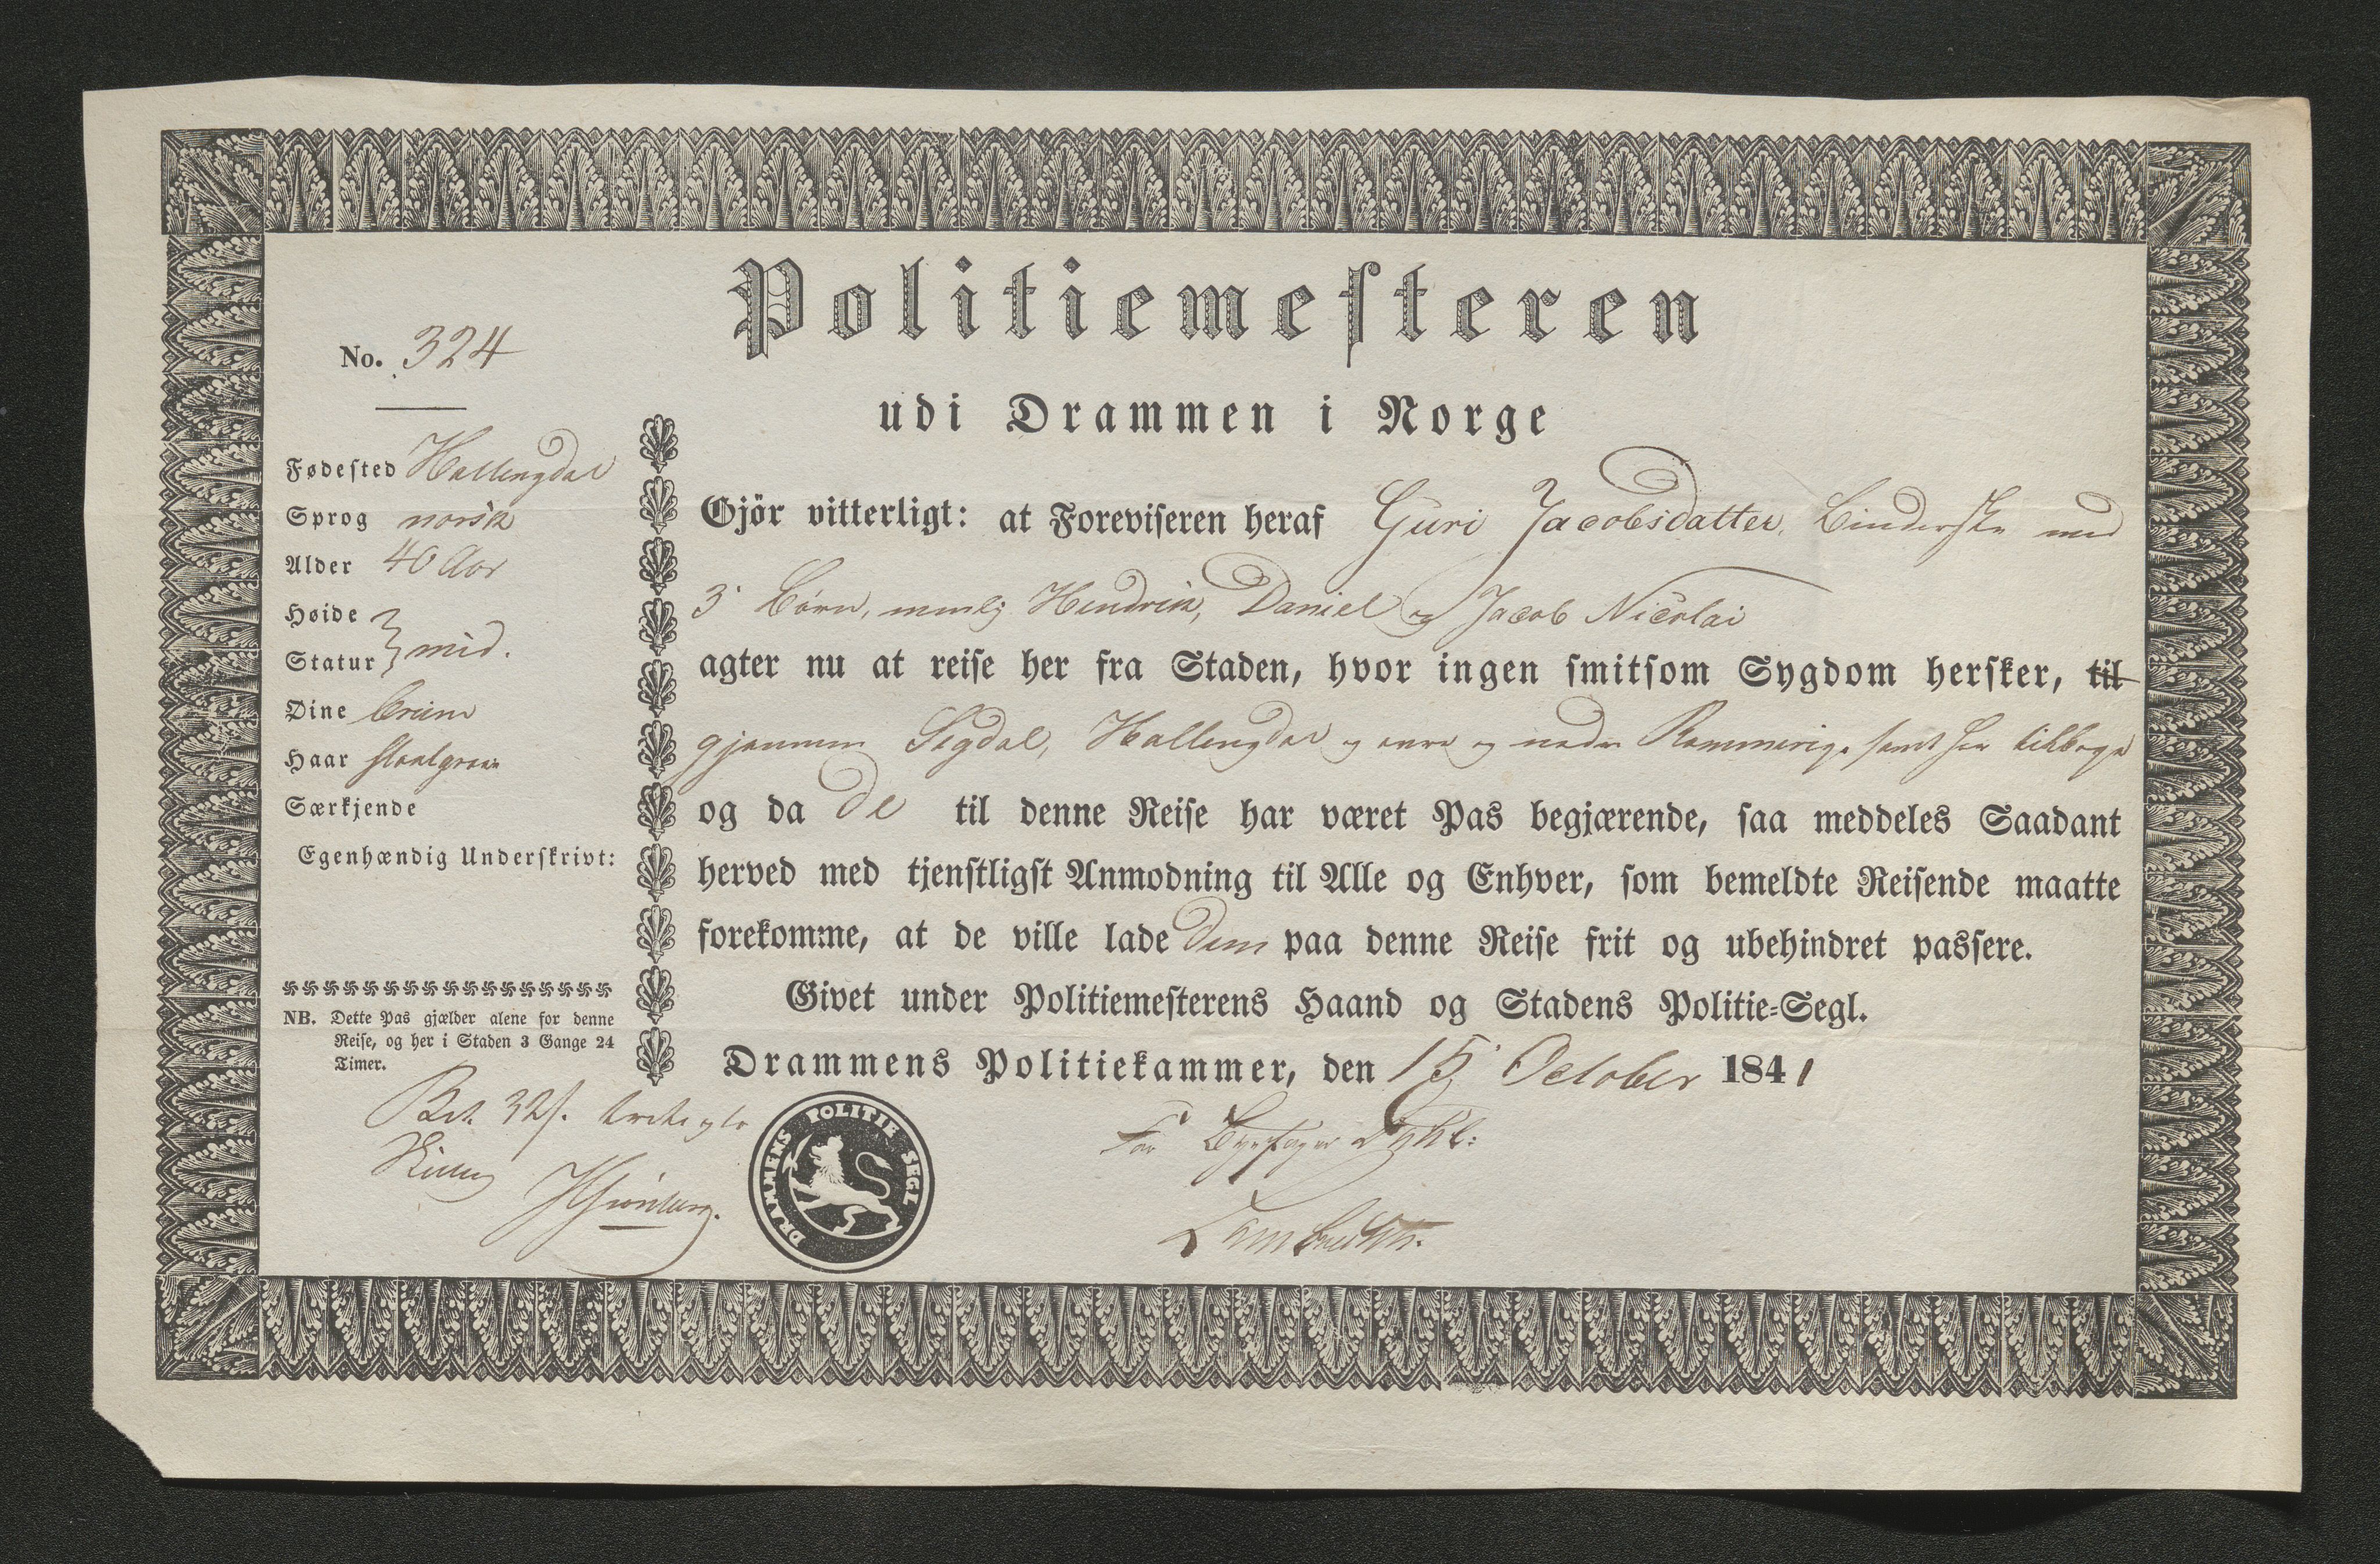 Politiemesteren
udi Drammen i Norge
No. 324
Fødested Hallingdal
Sprog norsk
Alder 40 Aar
Høide
Statur } mid.
Øine
Haar
Særkjende
Egenhændig Underskrivt:
NB. Dette Pas gjælder alene for denne
Reise, og her i Staden 3 Gange 24
Timer.
Bet. 32 s.
Gjör vitterligt: at Foreviseren heraf Guri Jacobsdatter, Binderske med
3 Börn, nemlig Hendrik, Daniel og Jacob Nicolai
agter nu at reise her fra Staden, hvor ingen smitsom Sygdom hersker, til
gjennem Sigdal, Hallingdal og øvre og nedre Rommerige samt her tilbage
og da de til denne Reise har været Pas begjærende, saa meddeles Saadant
herved med tjenstligst Anmodning til Alle og Enhver, som bemeldte Reisende maatte
forekomme, at de ville lade dem paa denne Reise frit og ubehindret passere.
Givet under Politiemesterens Haand og Stadens Politie-Segl.
Drammens Politiekammer, den 15 October 1841
DRAMMENS POLITIE SEGL